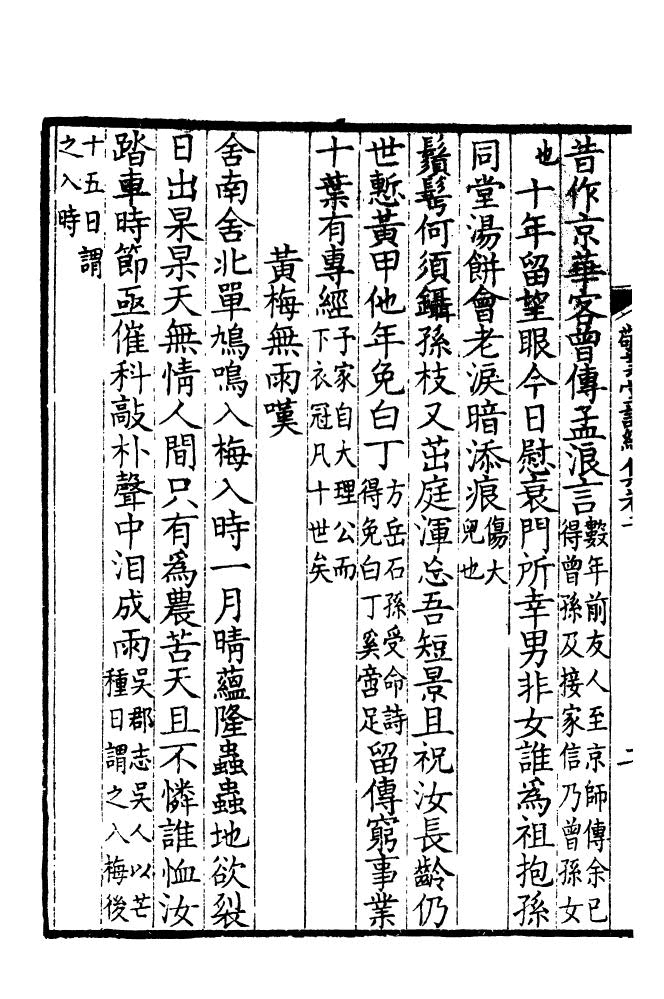 昔作京華客曾傳孟浪言數年前友人至京師傳余已得曾孫及接家信乃曾孫女
也十年留望眼今日慰衰門所幸男非女誰爲祖抱孫
同堂湯餅會老淚暗添痕傷大兒也
鬚髩何須鑷孫枝又茁庭渾忘吾短景且祝汝長齡仍
世慙黃甲他年免白丁方岳石孫受命詩得免白丁奚啻足留傳窮事業
十葉有專經予家自大理公而下衣冠凡十世矣
黃梅無雨嘆
舍南舍北單鳩鳴入梅入時一月晴蘊隆蟲蟲地欲裂
日出杲杲天無情人間只有爲農苦天且不憐誰恤汝
踏車時節亟催科敲朴聲中泪成雨吳郡志吳人以芒種日謂之入梅後
十五日謂之入時
二